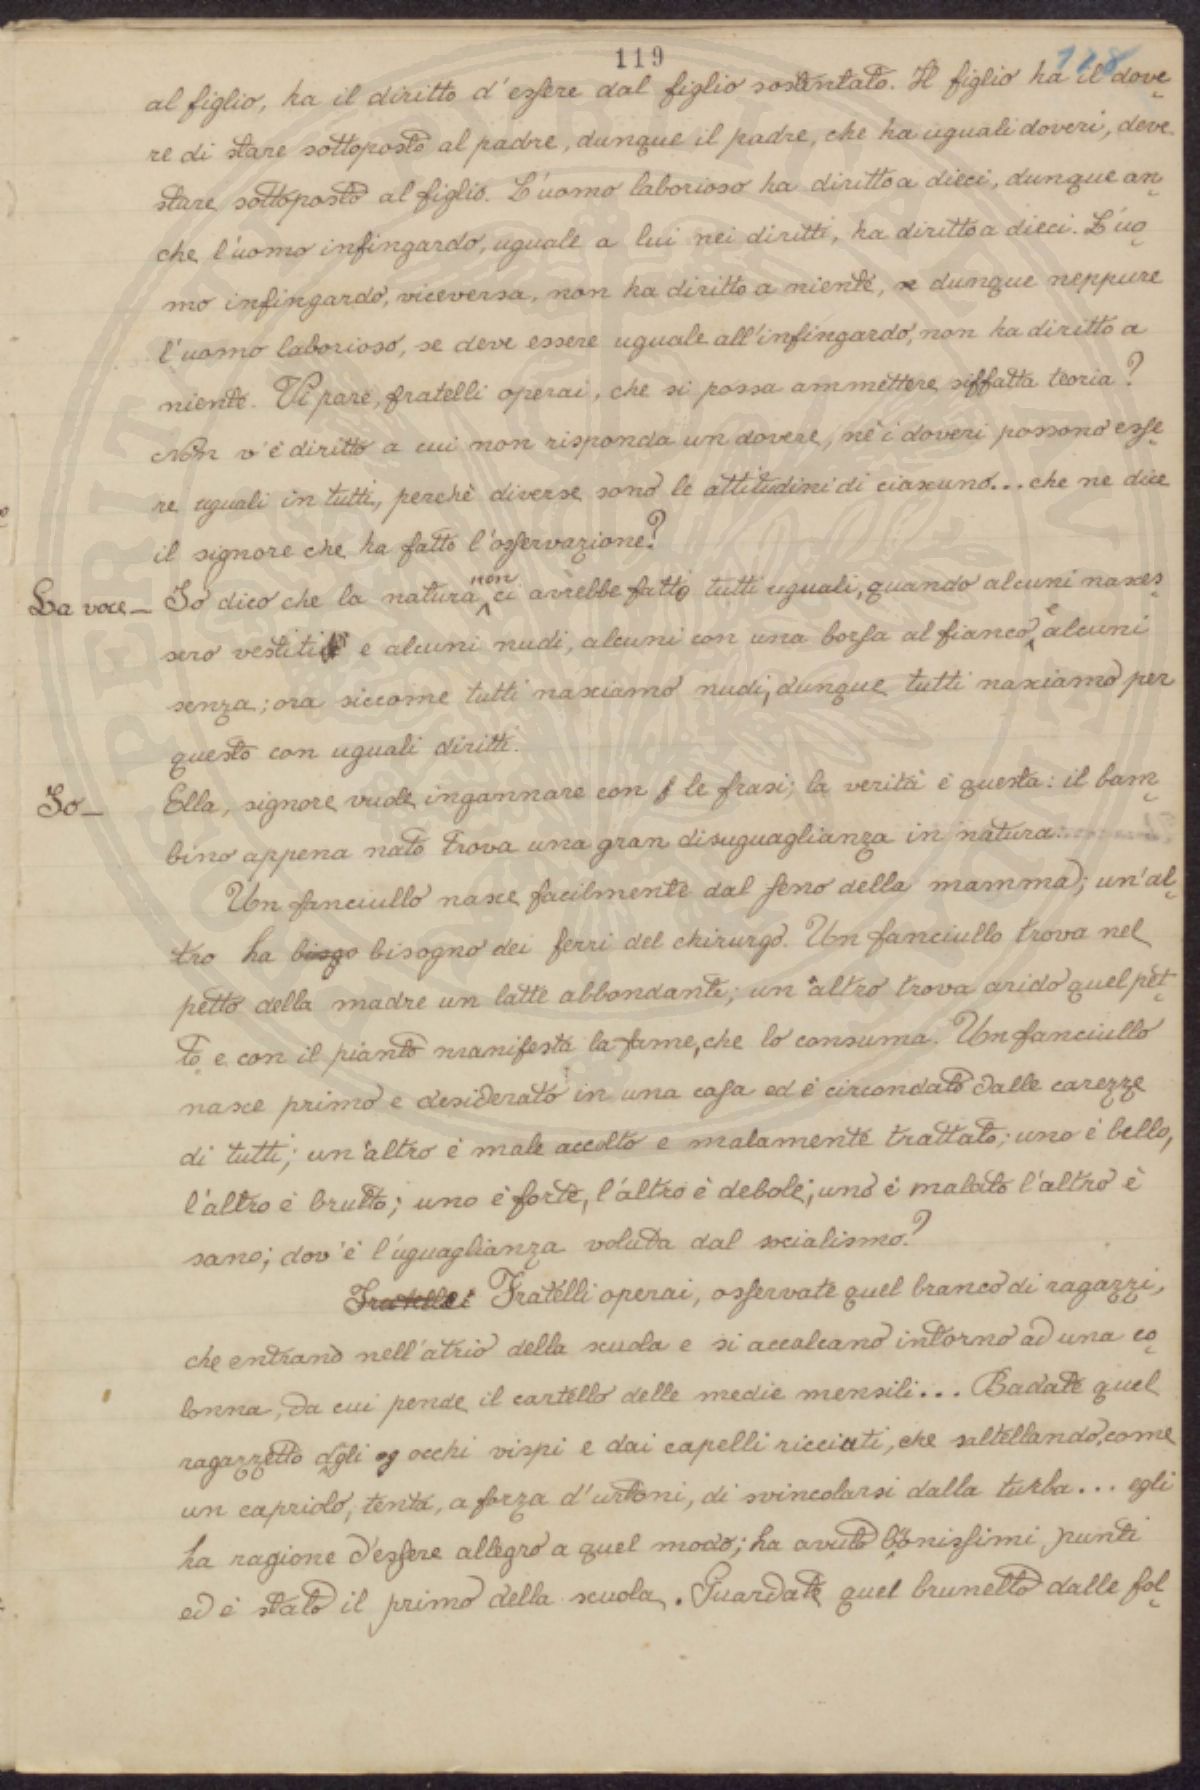 119 118
al figlio, ha il diritto d'essere dal figlio sostentato. Il figlio ha il dove-
re di stare sottoposto al padre, dunque il padre, che ha uguali doveri, deve
stare sottoposto al figlio. L'uomo laborioso ha diritto a dieci, dunque an-
che l'uomo infingardo, uguale a lui nei diritti, ha diritto a dieci. L'uo-
mo infingardo, viceversa, non ha diritto a niente, e dunque neppure
l'uomo laborioso, se deve essere uguale all'infingardo, non ha diritto a
niente. Vi pare, fratelli operai, che si possa ammettere siffatta teoria?
Non v'è diritto a cui non risponda un dovere, nè i doveri possono esse-
re uguali in tutti, perchè diverse sono le attitudini di ciascuno... che ne dice
il signore che ha fatto l'osservazione?
La voce_ Io dico che la natura non ci avrebbe fatto tutti uguali, quando alcuni nasces-
sero vestiti e alcuni nudi, alcuni con una borsa al fianco e alcuni
senza; ora siccome tutti nasciamo nudi, dunque tutti nasciamo per
questo con uguali diritti.
Io_ Ella, signore vuole ingannare con le frasi; la verità è questa: il bam-
bino appena nato trova una gran disuguaglianza in natura.
Un fanciullo nasce facilmente dal seno della mamma; un'al-
tro ha bisogo bisogno dei ferri del chirurgo. Un fanciullo trova nel
petto della madre un latte abbondante; un'altro trova arido quel pet-
to e con il pianto manifesta la fame, che lo consuma. Un fanciullo
nasce primo e desiderato in una casa ed è circondato dalle carezze
di tutti; un'altro è male accolto e malamente trattato; uno è bello,
l'altro è brutto; uno è forte, l'altro è debole; uno è malato l'altro è
sano; dov'è l'uguaglianza voluta dal socialismo?
Fratelli Fratelli operai, osservate quel branco di ragazzi,
che entrano nell'atrio della scuola e si accalcano intorno ad una co-
lonna, da cui pende il cartello delle medie mensili... Badate quel
ragazzetto dagli og occhi vispi e dai capelli ricciuti, che saltellando, come
un capriolo, tenta, a forza d'urtoni, di svincolarsi dalla turba... egli
ha ragione d'essere allegro a quel modo; ha avuto bonissimi punti
ed è stato il primo della scuola. Guardate quel brunetto dalle fol-